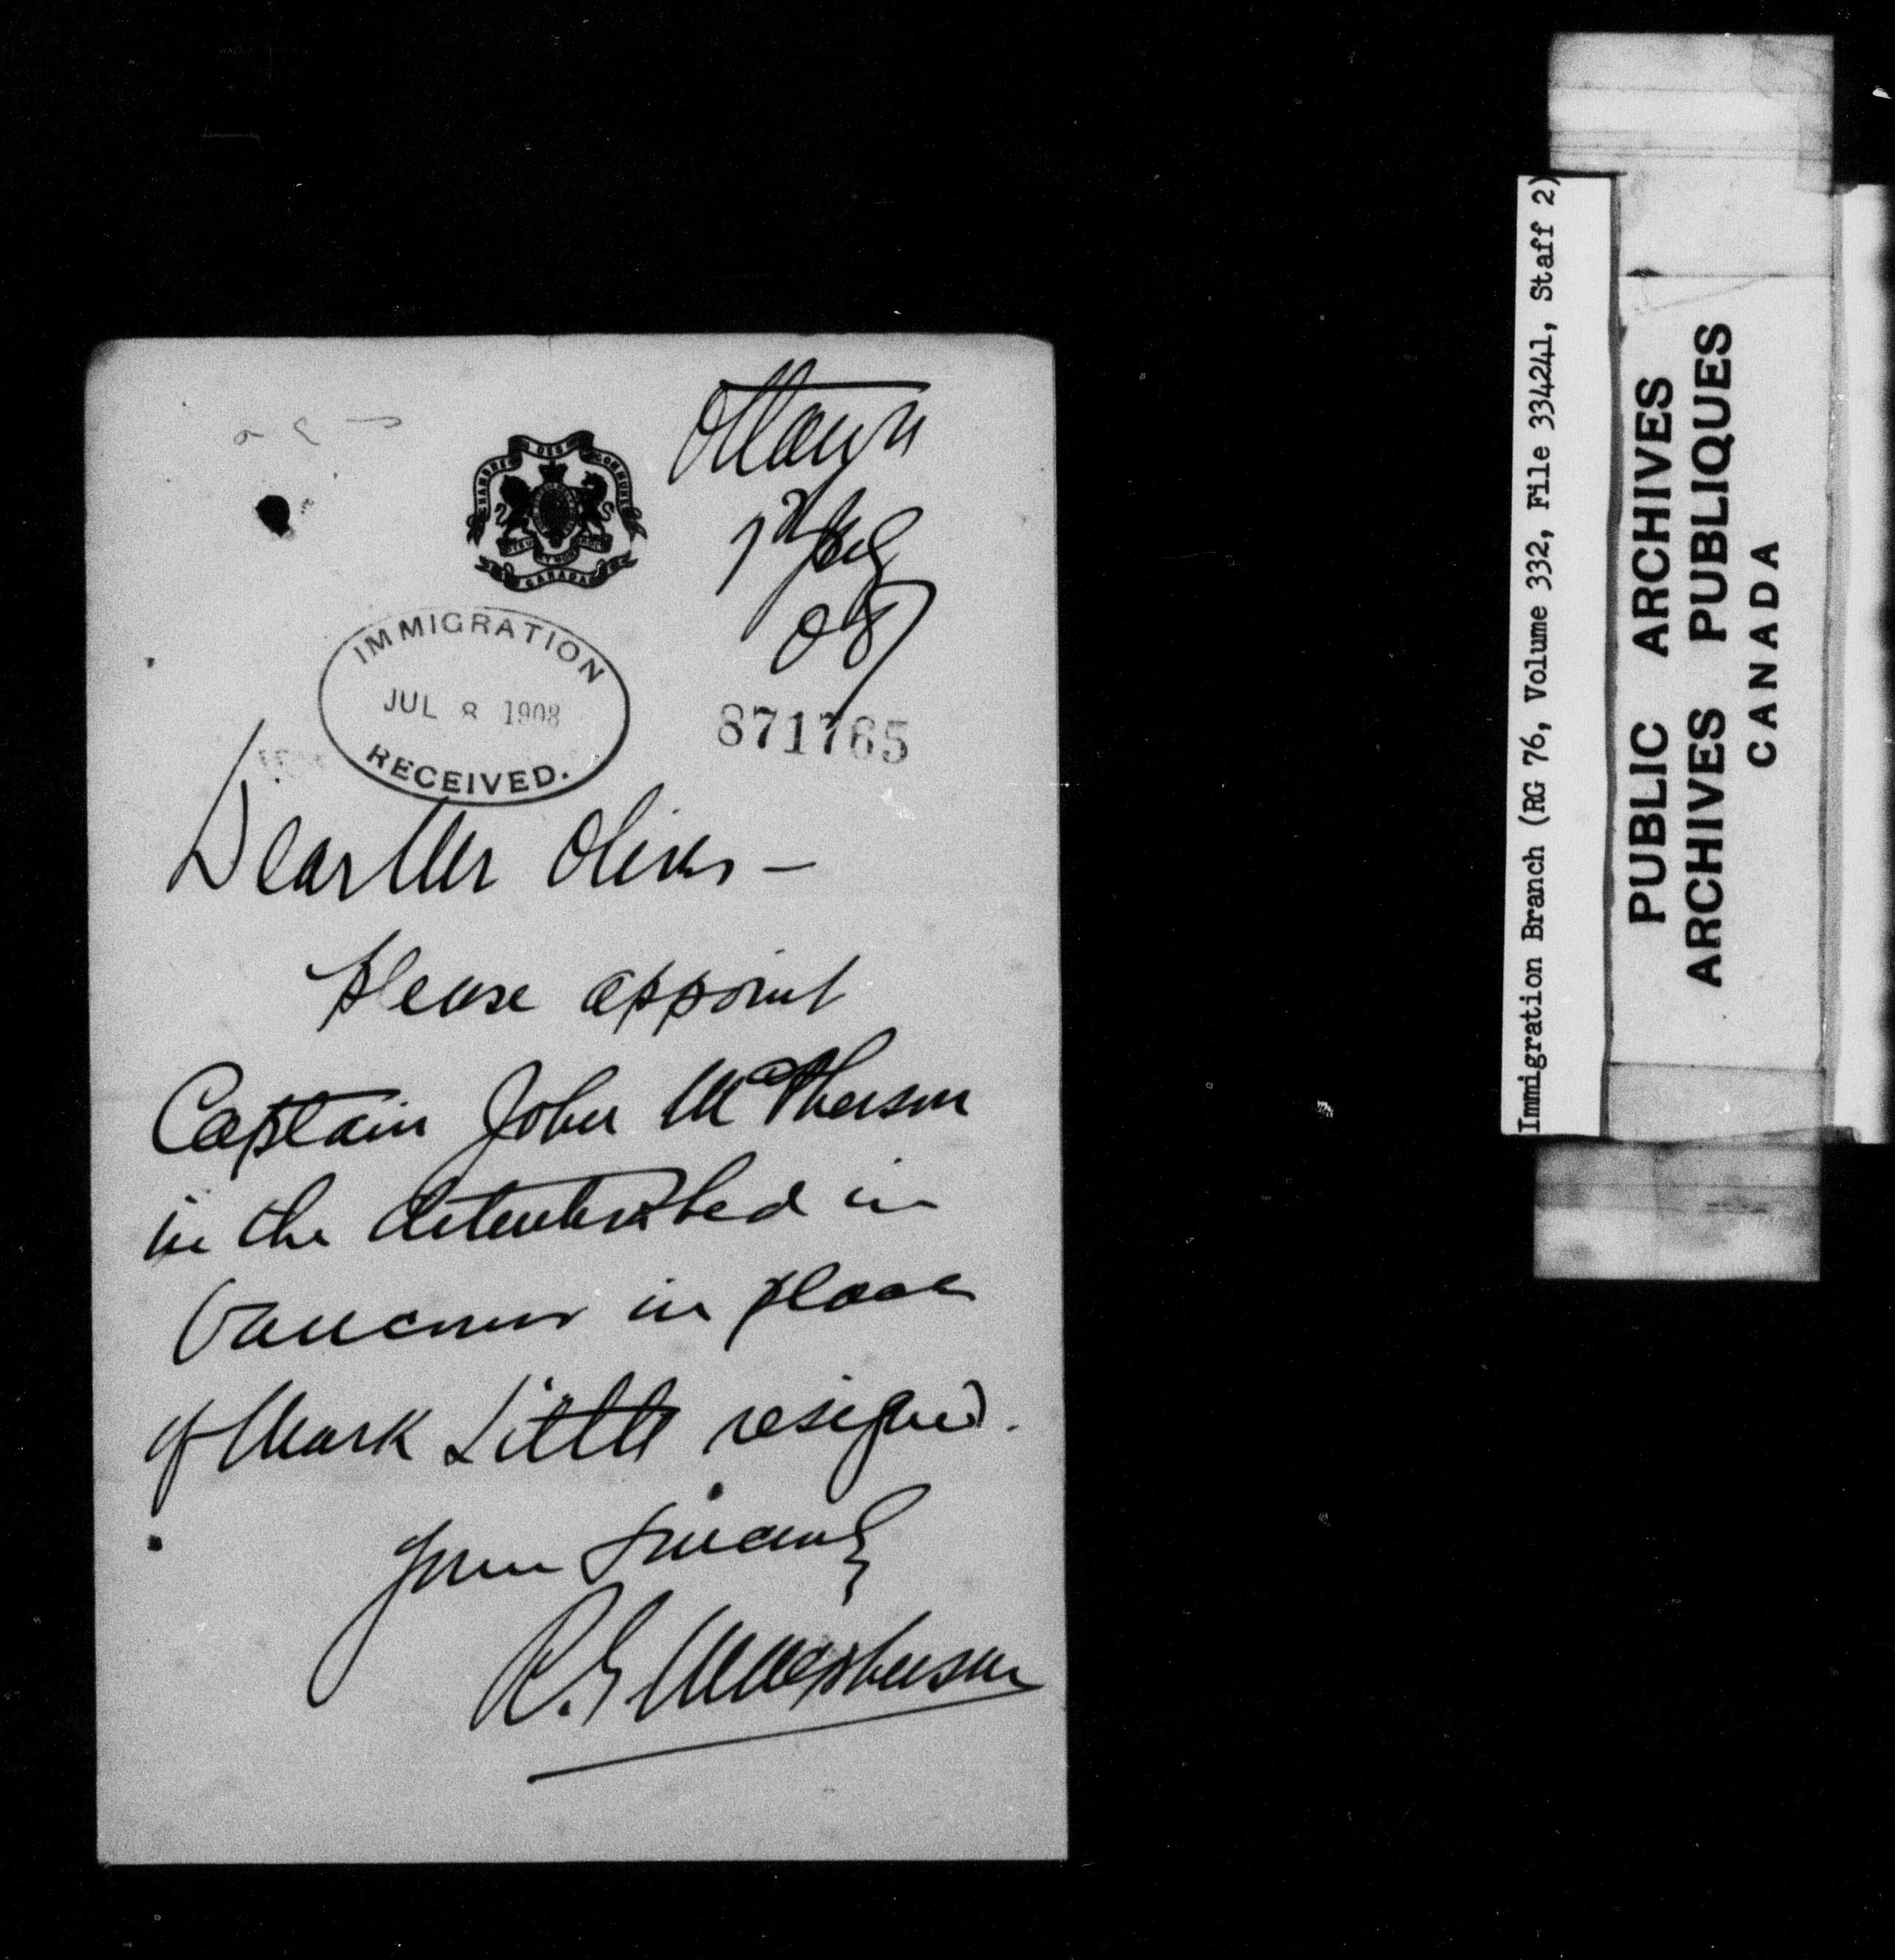 Ottawa
7th July
08
CHAMBRE DES COMMUNES
CANADA
IMMIGRATION
JUL 8 1908
RECEIVED.
871765
Dear Mr Oliver –
Please appoint
Captain John McPherson
in the detention shed in
Vancouver in place
of Mark Little resigned.
Yours Sincerely
R. G. Macpherson
Immigration Branch (RG 76, Volume 332, File 334241, Staff 2)
PUBLIC ARCHIVES
ARCHIVES PUBLIQUES
CANADA